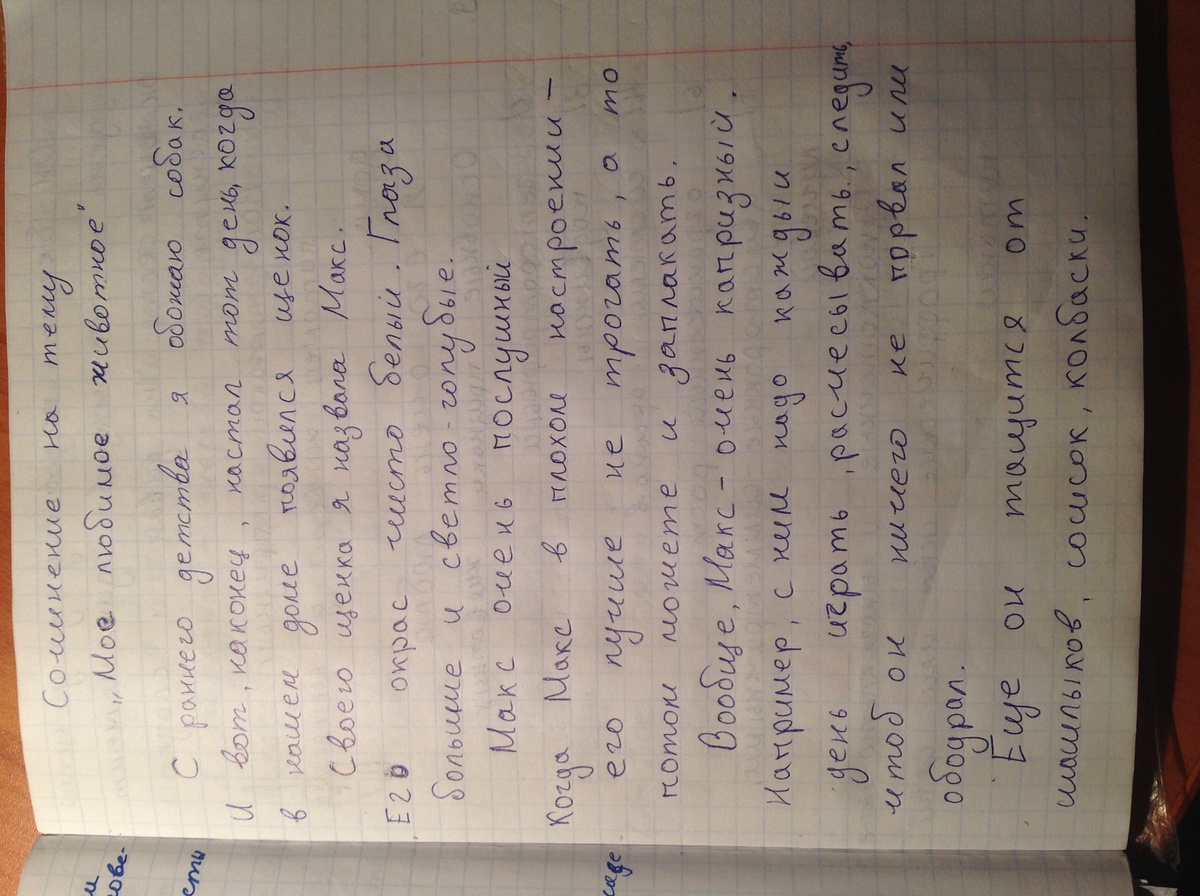 Сочинение на тему
„Мое любимое животное"
С раннего детства я обожаю собак.
И вот, наконец, настал тот день, когда
в нашем доме появился щенок.
Своего щенка я назвала Макс.
Его окрас чисто белый. Глаза
большие и светло-голубые.
Макс очень послушный
Когда Макс в плохом настроении –
его лучше не трогать, а то
потом может и заплакать.
Вообще, Макс – очень капризный.
Например, с ним надо каждый
день играть, расчесывать, следить,
чтоб он ничего не порвал или
ободрал.
Ещё он тащится от
шашлыков, сосисок, колбаски.
м
ове-
сть
саде.